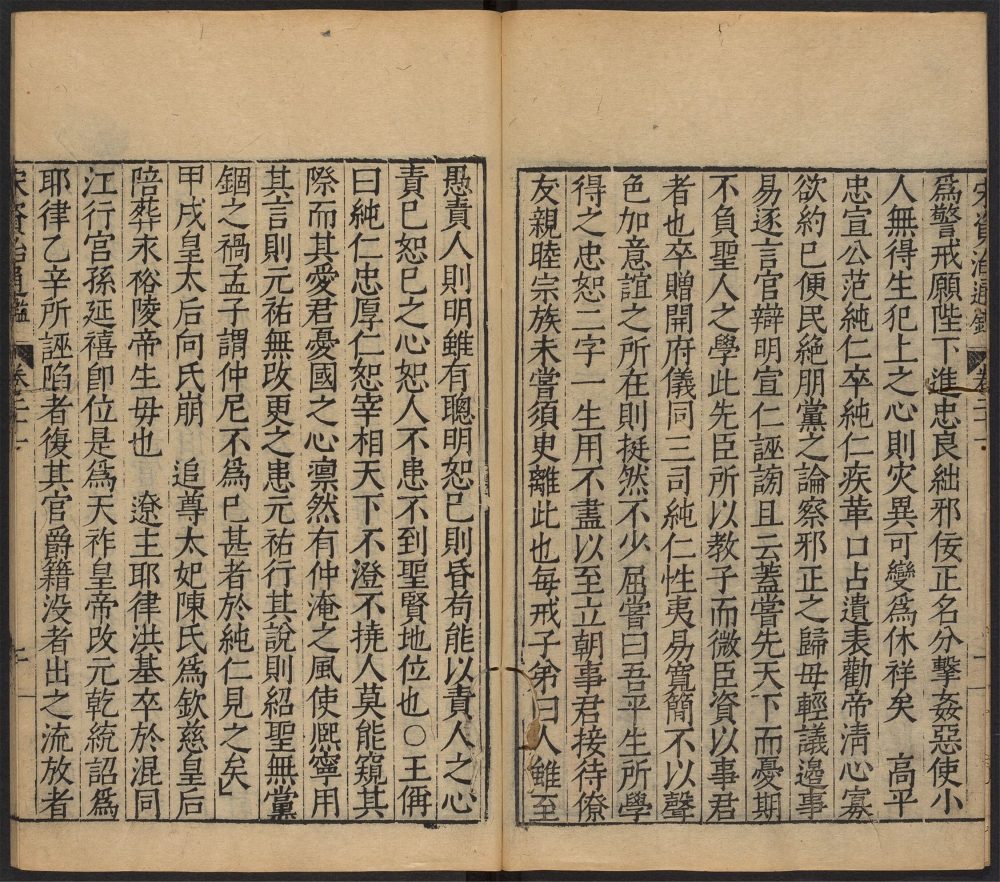 爲警戒願陛下進忠良絀邪佞正名分擊姦惡使小
人無得生犯上之心則灾異可變爲休祥矣　高平
忠宣公范純仁卒純仁疾革口占遺表勸帝清心寡
欲約己便民絶朋黨之論察邪正之歸毋輕議邊事
易逐言官辯明宣仁誣謗且云蓋嘗先天下而憂期
不負聖人之學此先臣所以敎子而微臣資以事君
者也卒贈開府儀同三司純仁性夷易寛簡不以聲
色加意誼之所在則挺然不少屈嘗曰吾平生所學
得之忠恕二字一生用不盡以至立朝事君接待僚
友親睦宗族未嘗須臾離此也每戒子弟曰人雖至
愚責人則明雖有聰明恕己則昏苟能以責人之心
責己恕己之心恕人不患不到聖賢地位也○王偁
曰純仁忠厚仁恕宰相天下不澄不撓人莫能窺其
際而其愛君憂國之心凛然有仲淹之風使熈寧用
其言則元祐無攺更之患元祐行其說則紹聖無黨
錮之禍孟子謂仲尼不爲已甚者於純仁見之矣」
甲戌皇太后向氏崩　追尊太妃陳氏爲欽慈皇后
陪葬永裕陵帝生母也　遼主耶律洪基卒於混同
江行宫孫延禧卽位是爲天祚皇帝攺元乾統詔爲
耶律乙辛所誣陷者復其官爵籍没者出之流放者